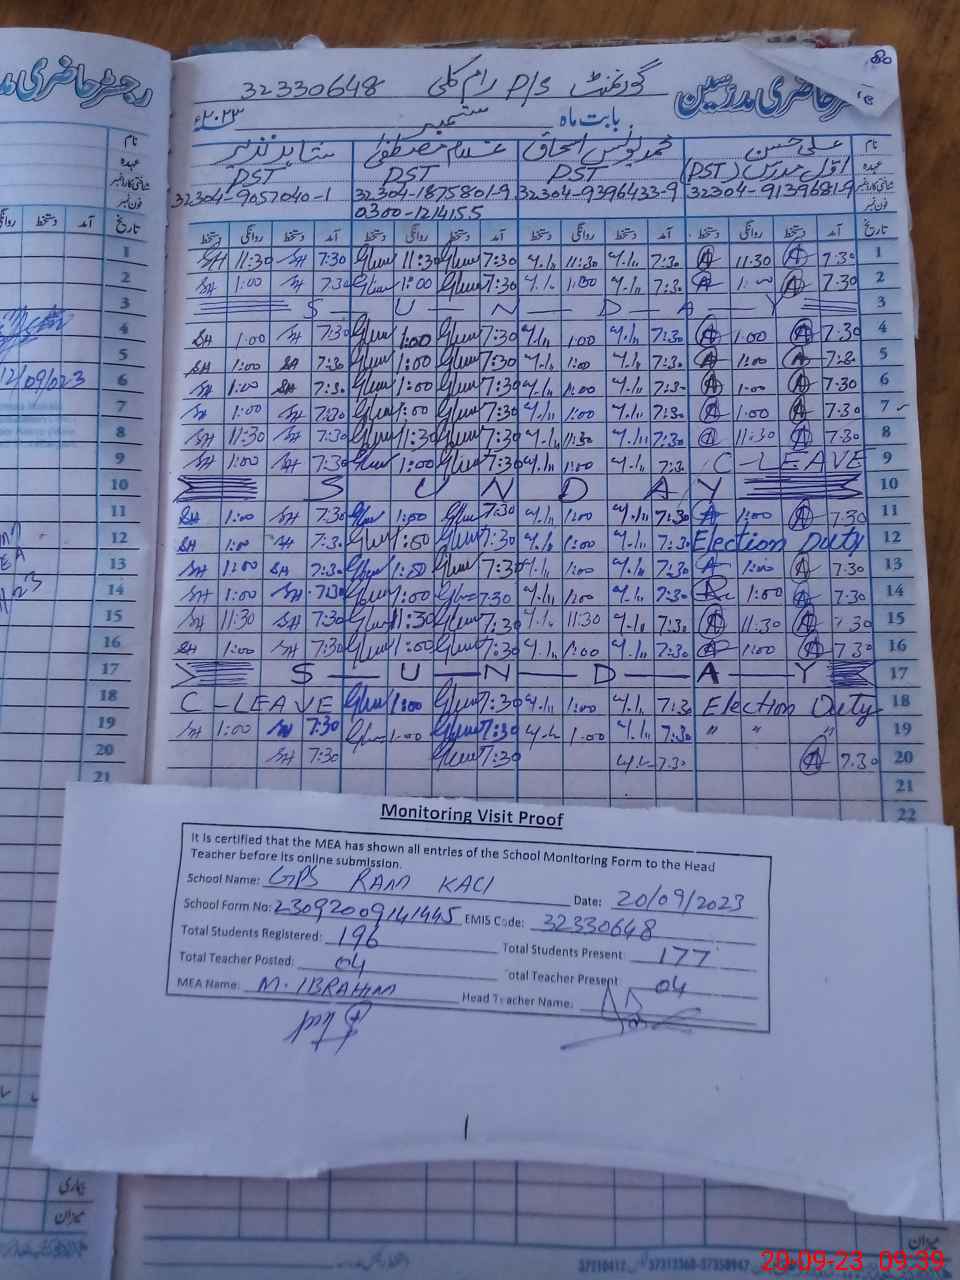 رجسٹر حاضری مدرسین
گورنمنٹ P/S رام کلی 32330648
بابت ماہ ستمبر ۲۰۲۳ء
نام علی حسن محمد یونس اسحاق غلام مصطفیٰ شاہد نذیر
عہدہ اول مدرس (PST) PST PST PST
شناختی کارڈ نمبر 32304-9139681-9 32304-9396433-9 32304-1875801-9 32304-9057040-1
فون نمبر 0300-1214155
تاریخ آمد دستخط روانگی دستخط آمد دستخط روانگی دستخط آمد دستخط روانگی دستخط آمد دستخط روانگی دستخط
SH 11:30 SH 7:30 11:30 7:30 11:30 7:30 A 11:30 A 7:30 1
SH 1:00 SH 7:30 1:00 7:30 1:00 7:30 A 1:00 A 7:30 2
S U N D A Y 3
SH 1:00 SH 7:30 1:00 7:30 1:00 7:30 A 1:00 A 7:30 4
SH 1:00 SH 7:30 1:00 7:30 1:00 7:30 A 1:00 A 7:30 5
SH 1:00 SH 7:30 1:00 7:30 1:00 7:30 A 1:00 A 7:30 6
SH 1:00 SH 7:30 1:00 7:30 1:00 7:30 A 1:00 A 7:30 7
SH 11:30 SH 7:30 11:30 7:30 11:30 7:30 A 11:30 A 7:30 8
SH 1:00 SH 7:30 1:00 7:30 1:00 7:30 C-LEAVE 9
S U N D A Y 10
SH 1:00 SH 7:30 1:00 7:30 1:00 7:30 A 1:00 A 7:30 11
SH 1:00 SH 7:30 1:00 7:30 1:00 7:30 Election Duty 12
SH 1:00 SH 7:30 1:00 7:30 1:00 7:30 A 1:00 A 7:30 13
SH 1:00 SH 7:30 1:00 7:30 1:00 7:30 A 1:00 A 7:30 14
SH 11:30 SH 7:30 11:30 7:30 11:30 7:30 A 11:30 A 7:30 15
SH 1:00 SH 7:30 1:00 7:30 1:00 7:30 A 1:00 A 7:30 16
S U N D A Y 17
C-LEAVE 1:00 7:30 1:00 7:30 Election Duty 18
SH 1:00 SH 7:30 1:00 7:30 1:00 7:30 " " " 19
SH 7:30 7:30 7:30 A 7:30 20
21
22
Monitoring Visit Proof
It is certified that the MEA has shown all entries of the School Monitoring Form to the Head
Teacher before its online submission.
School Name: GPS RAM KALI Date: 20/09/2023
School Form No: 23092009141445 EMIS Code: 32330648
Total Students Registered: 196 Total Students Present: 177
Total Teacher Posted: 04 Total Teacher Present 04
MEA Name: M. IBRAHIM Head Teacher Name:
1
بیماری
میزان
میزان
20-09-23 09:39